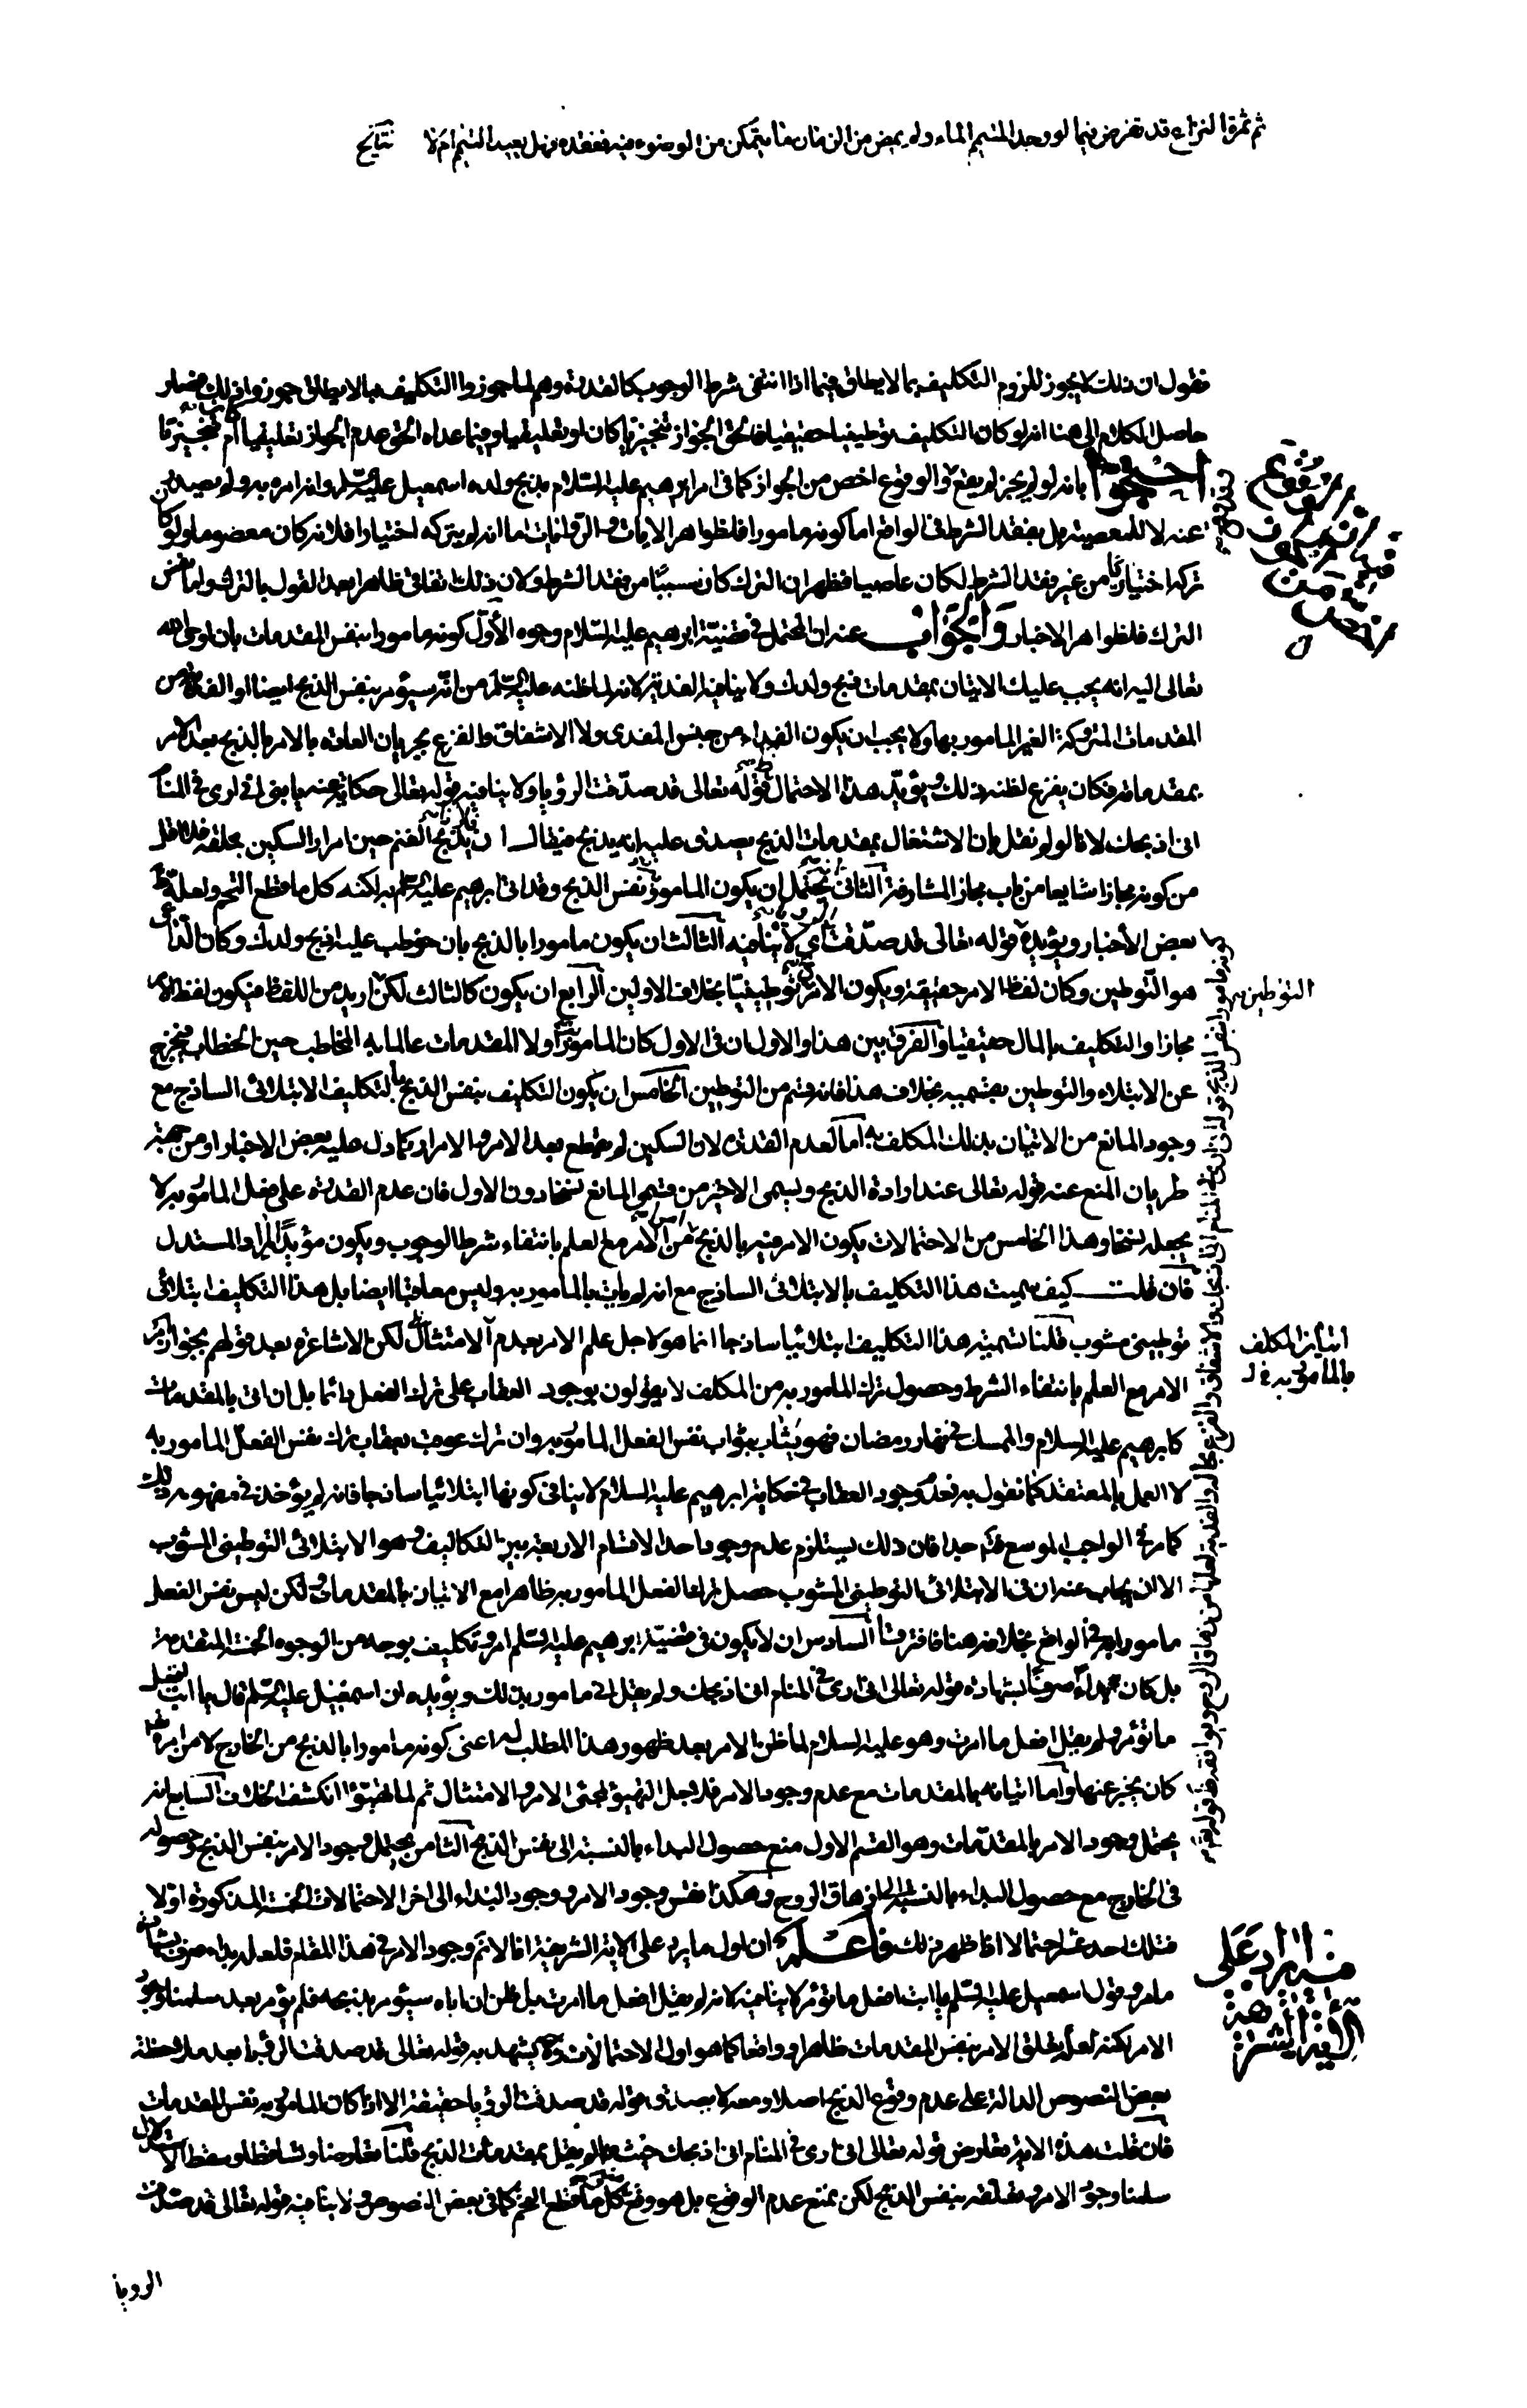 ثم ثمرة النزاع قد تفرض فيما لو وجد المتيمم الماء ولم يمض من الزمان ما يتمكن من الوضوء فيه ففقده فهل يعيد التيمم ام لا نتايج
فنقول ان ذلك لا يجوز للزوم التكليف بما لا يطاق فيما اذا انتفى شرط الوجوب كالقدرة وهم لما جوزوا التكليف بما لا يطاق جوزوا ذلك فصار
حاصل الكلام الى هنا انه لو كان التكليف توطينيا حقيقيا فالحق الجواز تنجيزيا كان او تعليقيا وفيما عداه الحق عدم الجواز تعليقيا ام تنجيزيا
احتجوا بانه لو لم يجز لم يقع والوقوع اخص من الجواز كما في امر ابرهيم عليه السلام بذبح ولده اسمعيل عليه السلم وانه امر به ولم يصدر
عنه لا للمعصية بل بفقد الشرط في الواقع اما كونه مامورا فلظواهر الايات والروايات اما انه لم يتركه اختيارا فلانه كان معصوما ولو كان
تركه اختيارا من غير فقد الشرط لكان عاصيا فظهر ان الترك كان مسببا من فقد الشرط ولان ذلك اتفاقي ظاهرا بعد القول بالترك واما نفس
الترك فلظواهر الاخبار والجواب عنه ان المحتمل في قضية ابرهيم عليه السلام وجوه الأول كونه مامورا بنفس المقدمات بان اوحى الله
تعالى اليه انه يجب عليك الاتيان بمقدمات ذبح ولدك ولا ينافيه الفدية لانه لما ظنه عليه السلم من انه سيؤمر بنفس الذبح ايضا او الفداء من
المقدمات المتروكة الغير المامور بها ولا يجب ان يكون الفداء من جنس المفدى ولا الاشفاق والفزع بجريان العادة بالامر بالذبح بعد الامر
بمقدماته فكان يفزع لظنه ذلك ويؤيد هذا الاحتمال قوله تعالى قد صدّقت الرؤيا ولا ينافيه قوله تعالى حكاية عنه يا بني اني ارى في المنام
اني اذبحك لانا لو لم نقل بان الاشتغال بمقدمات الذبح يصدق عليه انه يذبح فيقال ان فلانا يذبح الغنم حين امرار السكين بحلقه فلا اقل
من كونه مجازا شايعا من باب مجاز المشارفة الثاني يحتمل ان يكون المامور به نفس الذبح وقد اتى ابرهيم عليه السلم به لكنه كل ما قطع التحم ولعله
بعض الأخبار ويؤيده قوله تعالى قد صدّقت الرؤيا اي لا ينافيه الثالث ان يكون مامورا بالذبح بان خوطب عليه اذبح ولدك وكان الداعي
هو التوطين وكان لفظ الامر حقيقة ويكون الامر توطينيّا بخلاف الاولين الرابع ان يكون كالثالث لكن اريد من اللفظ فيكون لفظ الامر
مجازا والتكليف بالمال حقيقيا والفرق بين هذا والاول ان في الاول كان المامور به اولا المقدمات عالما به المخاطب حين الخطاب فيخرج
عن الابتلاء والتوطين بقسميه بخلاف هذا فانه قسم من التوطين الخامس ان يكون التكليف بنفس الذبح بالتكليف الابتلائي الساذج مع
وجود المانع من الاتيان بذلك المكلف به اما لعدم القدرة لان السكين لم يقطع بعد الامر والامرار كما دل عليه بعض الاخبار او من جهة
طريان المنع عنه قوله تعالى عند ارادة الذبح ويسمى الاخير من قسمي المانع نسخا دون الاول فان عدم القدرة على فعل المامور به لا
يجعله نسخا وهذا الخامس من الاحتمالات يكون الامر فيه بالذبح من الامر مع العلم بانتفاء شرط الوجوب ويكون مؤيدا لمراد المستدل
فان قلت كيف سميت هذا التكليف بالابتلائي الساذج مع انه لم يات بالمامور به وليس معاقبا ايضا بل هذا التكليف ابتلائي
توطيني مشوب قلنا تسميته هذا التكليف ابتلائيا ساذجا انما هو لاجل علم الامر بعدم الامتثال لكن الاشاعرة بعد قولهم بجواز
الامر مع العلم بانتفاء الشرط وحصول ترك المامور به من المكلف لا يقولون بوجود العقاب على ترك الفعل دائما بل ان اتى بالمقدمات
كابرهيم عليه السلام والممسك في نهار رمضان فهو يثاب بثواب نفس الفعل المامور به وان ترك عوقب بعقاب ترك نفس الفعل المامور به
لا العمل بالمعتقد كما نقول به فعدم وجود العقاب في حكاية ابرهيم عليه السلام لا ينافي كونها ابتلائيا ساذجا فانه لم يؤخذ في مفهومه ذلك
كما مر في الواجب الموسع فتدبر جيدا فان ذلك يستلزم عدم وجود احد الاقسام الاربعة بين التكاليف وهو الابتلائي التوطيني المشوب
الا ان يجاب عنه ان في الابتلائي التوطيني المشوب حصل ترك الفعل المامور به ظاهرا مع الاتيان بالمقدمات لكن ليس نفس الفعل
مامورا به في الواقع بخلافه هنا فافترقتا السادس ان لا يكون في قضية ابرهيم عليه السلم امر وتكليف بوجه من الوجوه الخمسة المتقدمة
بل كان بداء صرفا بشهادة قوله تعالى اني ارى في المنام اني اذبحك ولم يقل اني مامور بذلك ويؤيده ان اسمعيل عليه السلم قال يا ابت افعل
ما تؤمر ولم يقل افعل ما امرت وهو عليه السلام لما ظن بالامر بعد ظهور هذا المطلب له اعني كونه مامورا بالذبح من الخارج لا من امر
كان يخبر عنها واما اتيانه بالمقدمات مع عدم وجود الامر فلاجل التهيؤ لمجئ الامر والامتثال ثم لما تهيؤا انكشف الخلاف السابع انه
يحتمل وجود الامر بالمقدمات وهو القسم الاول منع حصول البداء بالنسبة الى نفس الذبح الثامن يحتمل وجود الامر بنفس الذبح وحصوله
في الخارج مع حصول البداء بالنسبة الى ازهاق الروح وهكذا نفس وجود الامر ووجود البداء الى اخر الاحتمالات الخمسة المذكورة اولا
فتلك احد عشر احتمالا اذا ظهر ذلك فاعلم ان اول ما يرد على الاية الشريفة انا لا نم وجود الامر في هذا المقام فلعله بداء صرف بشهادة
ما مر وقول اسمعيل عليه السلم يا ابت افعل ما تؤمر لا ينافيه لانه لم يقل افعل ما امرت بل ظن ان اباه سيؤمر بذبحه فلم يؤمر بعد سلمنا وجود
الامر لكنه لعله تعلق الامر بنفس المقدمات ظاهرا وواقعا كما هو اول الاحتمالات وح يشهد به قوله تعالى قد صدقت الرؤيا بعد ملاحظة
بعض النصوص الدالة على عدم وقوع الذبح اصلا ومعه لا يصدق قوله قد صدقت الرؤيا حقيقة الا اذا كان المامور به نفس المقدمات
فان قلت هذه الاية تعارض قوله تعالى اني ارى في المنام اني اذبحك حيث لم يقل بمقدمات الذبح قلنا تعارضا وتساقطا وسقط الاستدلال
سلمنا وجود الامر وتعلقه بنفس الذبح لكن نمنع عدم الوقوع بل هو وقع كل ما قطع التحم كما في بعض النصوص ولا ينافيه قوله تعالى قد صدقت
التوطين
اتيان المكلف
بالمامور به
فيما يرد على
الاية الشريفة
الرويا